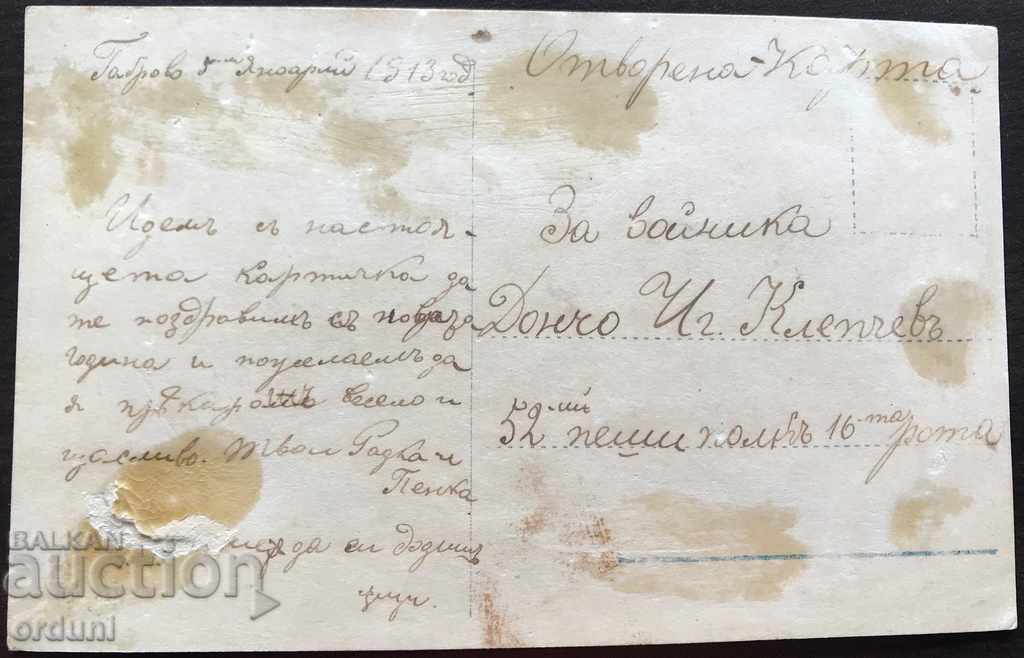 Габрово 5ий Януарий 1913 год
Идемъ съ настоя-
щета картичка да
те поздравимъ съ новата
година и пожелаемъ да
я прѣкарашъ весело и
щасливо. Твои Радка и
Пенка
да си додишъ
Отворена-Карта
За войника
Дончо Иг. Клепчевъ
52ий пеши полкъ 16та рота
BALKAN
auction
orduni